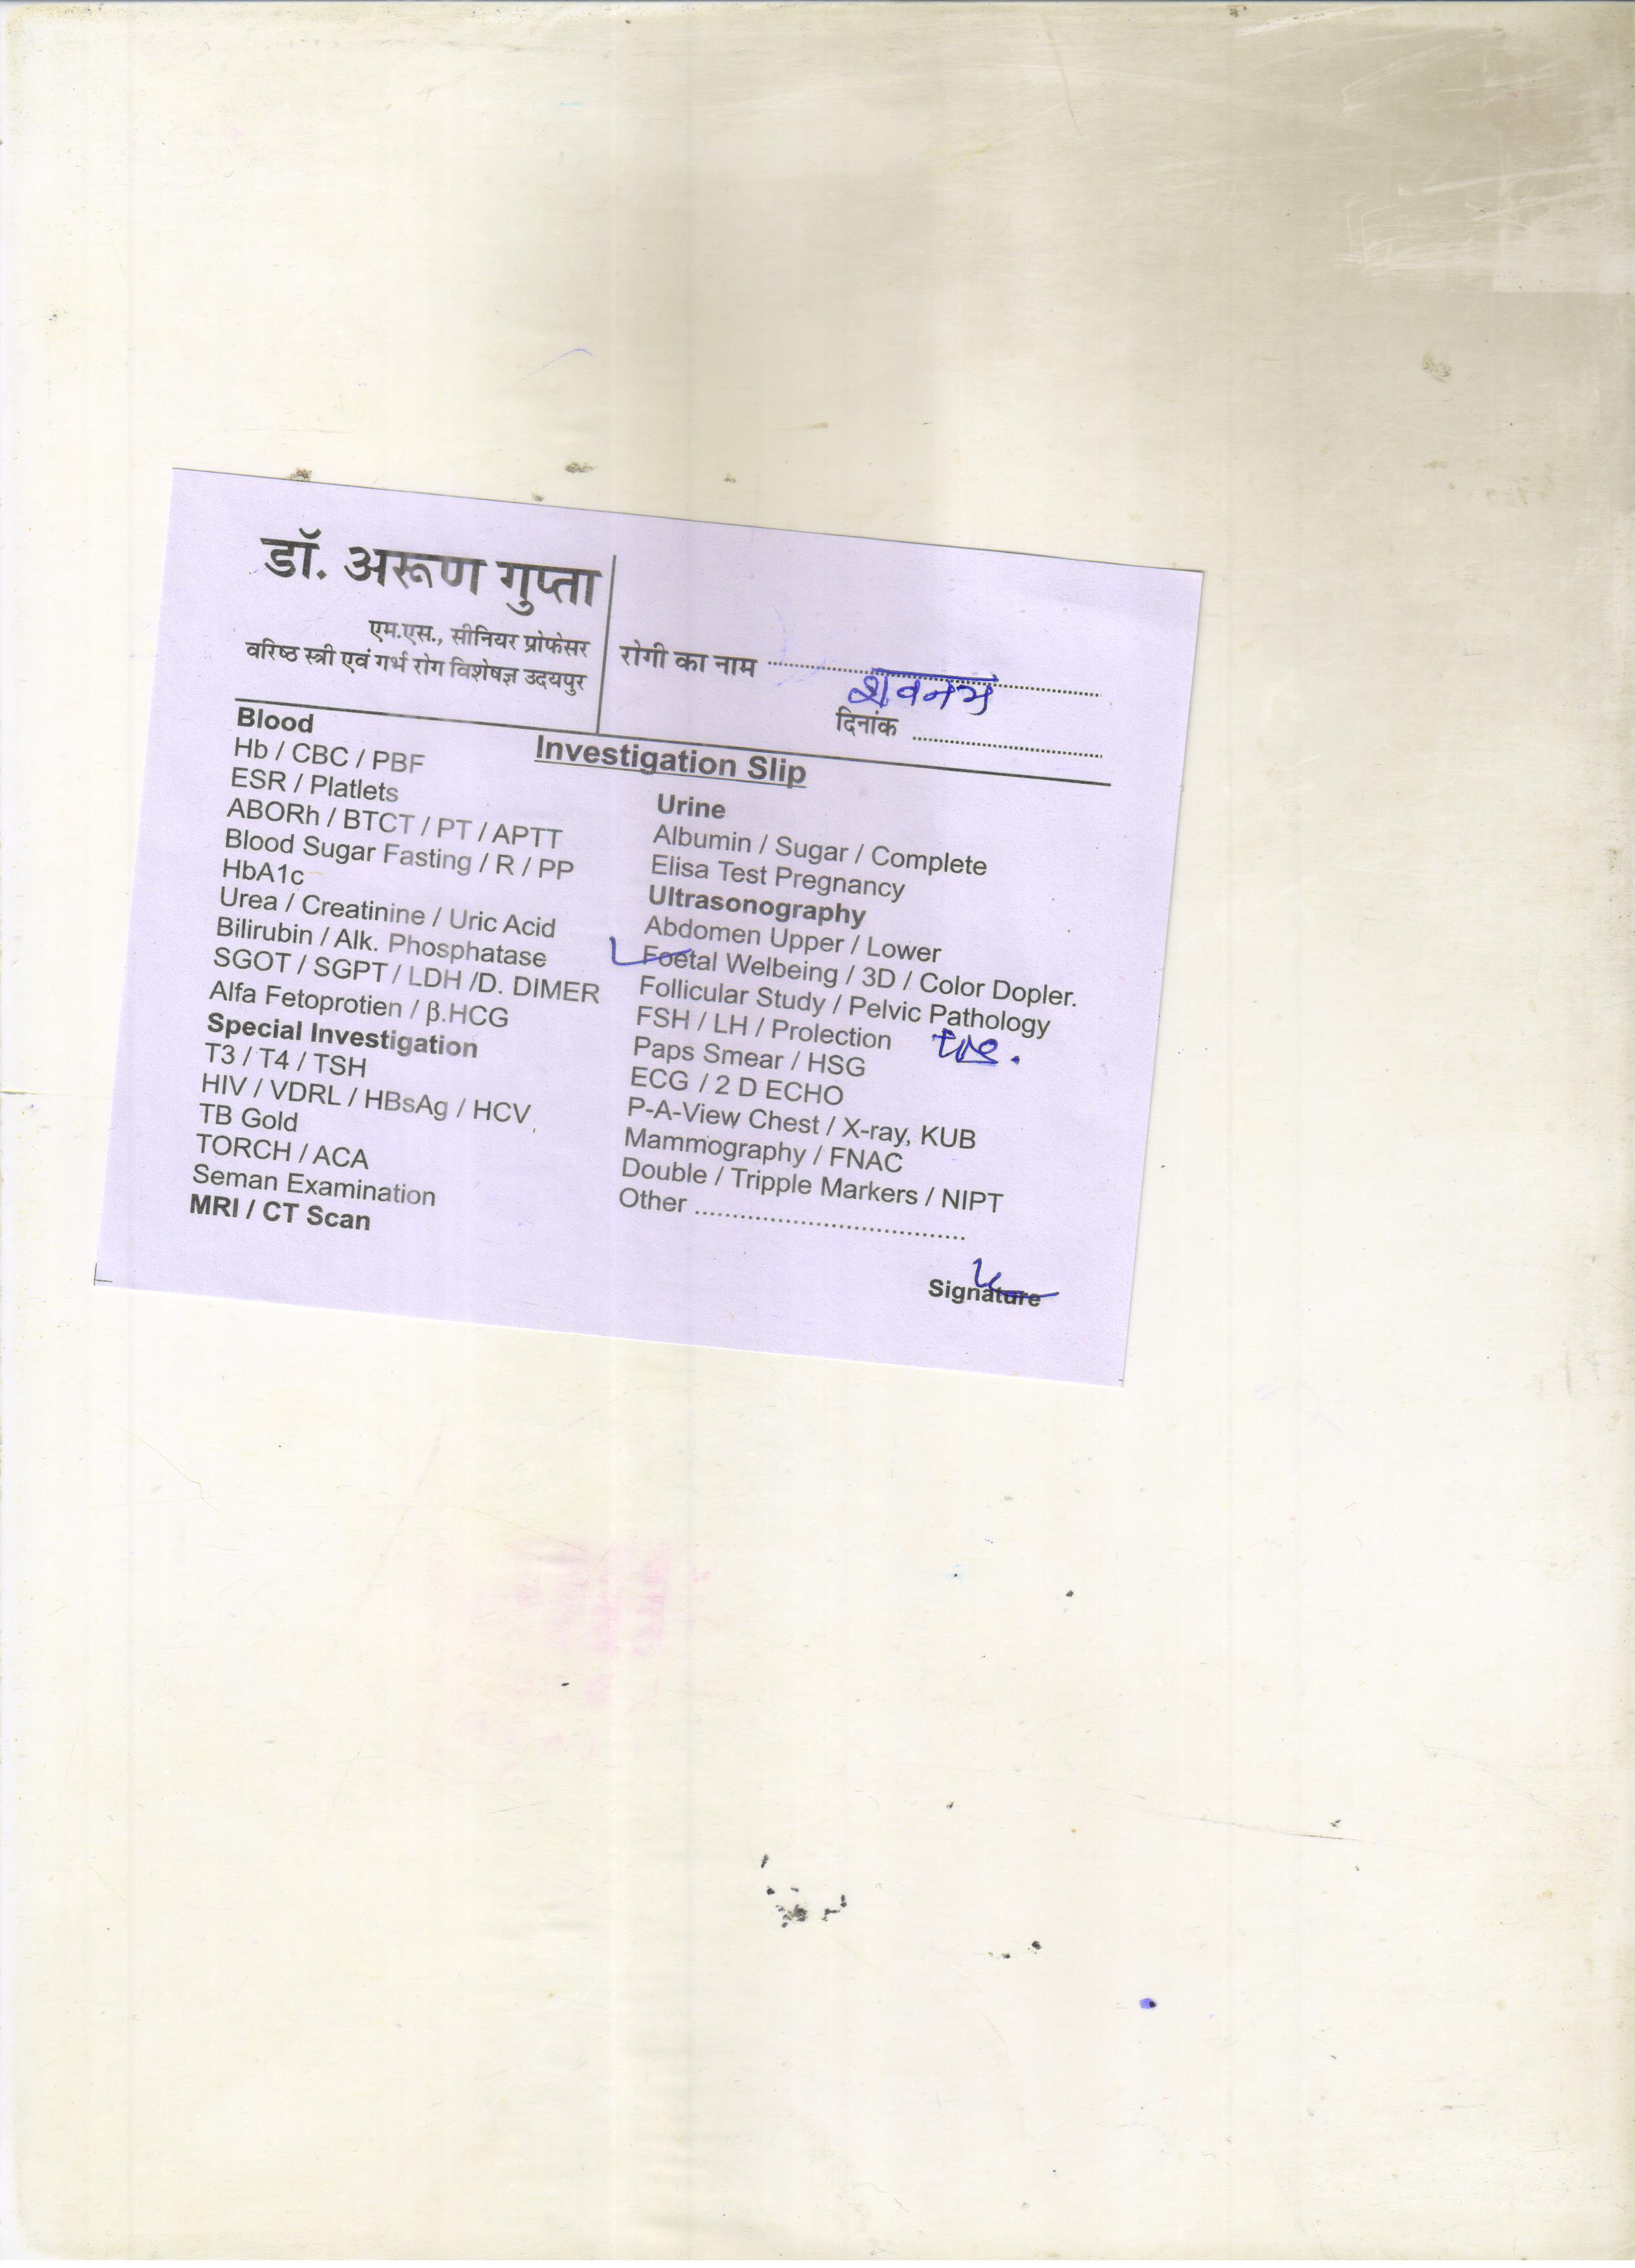 डॉ. अरूण गुप्ता
एम.एस., सीनियर प्रोफेसर
वरिष्ठ स्त्री एवं गर्भ रोग विशेषज्ञ उदयपुर
रोगी का नाम शवनम
दिनांक
Investigation Slip
Blood
Hb / CBC / PBF
ESR / Platlets
ABORh / BTCT / PT / APTT
Blood Sugar Fasting / R / PP
HbA1c
Urea / Creatinine / Uric Acid
Bilirubin / Alk. Phosphatase
SGOT / SGPT / LDH /D. DIMER
Alfa Fetoprotien / β.HCG
Special Investigation
T3 / T4 / TSH
HIV / VDRL / HBsAg / HCV
TB Gold
TORCH / ACA
Seman Examination
MRI / CT Scan
Urine
Albumin / Sugar / Complete
Elisa Test Pregnancy
Ultrasonography
Abdomen Upper / Lower
Foetal Welbeing / 3D / Color Dopler.
Follicular Study / Pelvic Pathology
FSH / LH / Prolection
Paps Smear / HSG
ECG / 2 D ECHO
P-A-View Chest / X-ray, KUB
Mammography / FNAC
Double / Tripple Markers / NIPT
Other
Signature